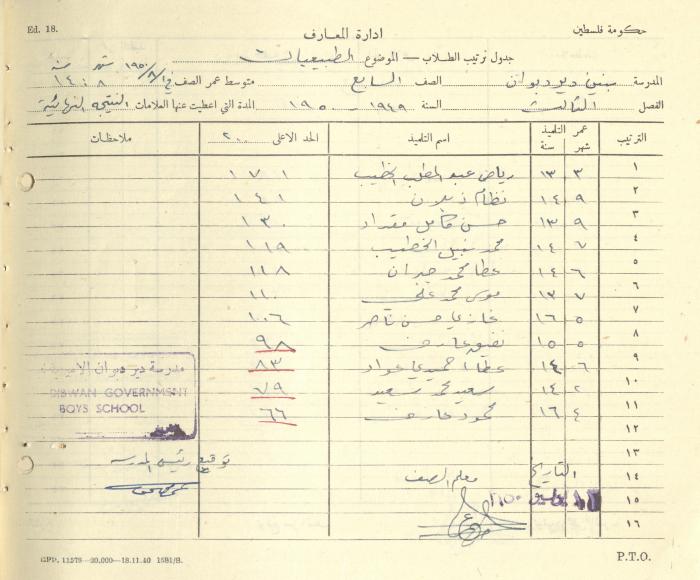 Ed. 18.
حكومة فلسطين
ادارة المعارف
جدول ترتيب الطلاب — الموضوع الطبيعيات
المدرسة بنين ديردبوان الصف السابع متوسط عمر الصف في ١/٨/١٩٥٠ ١٤:٨ شهر سنة
الفصل الثالث السنة ١٩٤٩ - ١٩٥٠ المدة التي اعطيت عنها العلامات النتيجة النهائية
الترتيب عمر التلميذ شهر سنة اسم التلميذ الحد الاعلى ٢٠٠ ملاحظات
١ ٣ ١٣ رياض عبد المطلب الخطيب ١٧١
٢ ٩ ١٤ نظام ١٤١
٣ ٩ ١٣ حسن كامل مقداد ١٣٠
٤ ٧ ١٤ محمد نبيل الخطيب ١١٩
٥ ٦ ١٤ عطا محمد جبران ١١٨
٦ ٧ ١٣ موسى محمد علي ١١٠
٧ ٥ ١٦ غازي حسن ناصر ١٠٦
٨ ٥ ١٥ عارف ٩٨
٩ ٦ ١٤ عطا احميدي عواد ٨٣
١٠ ٢ ١٤ سعيد محمد سعيد ٧٩
١١ ٤ ١٦ محمود عارف ٦٦
١٢
١٣
١٤ التاريخ معلم الصف توقيع رئيس المدرسة
١٥
١٦
مدرسة دير دبوان الاميرية
DIBWAN GOVERNMENT
BOYS SCHOOL
GPP. 11579—20,000—18.11.40 1581/S.
P.T.O.